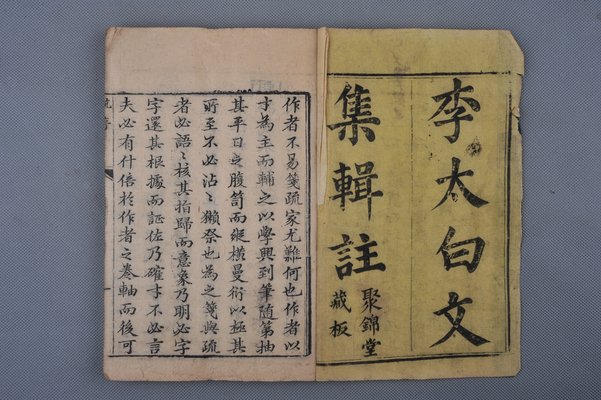 李太白文
集輯註
聚錦堂
藏板
作者不易箋疏家尤難何也作者以
才為主而輔之以學興到筆隨第抽
其平日之腹笥而縱橫曼衍以極其
所至不必沾〻獺祭也為之箋與疏
者必語〻核其指歸而意象乃明必字
字還其根據而証佐乃確才不必言
夫必有什倍於作者之卷軸而後可